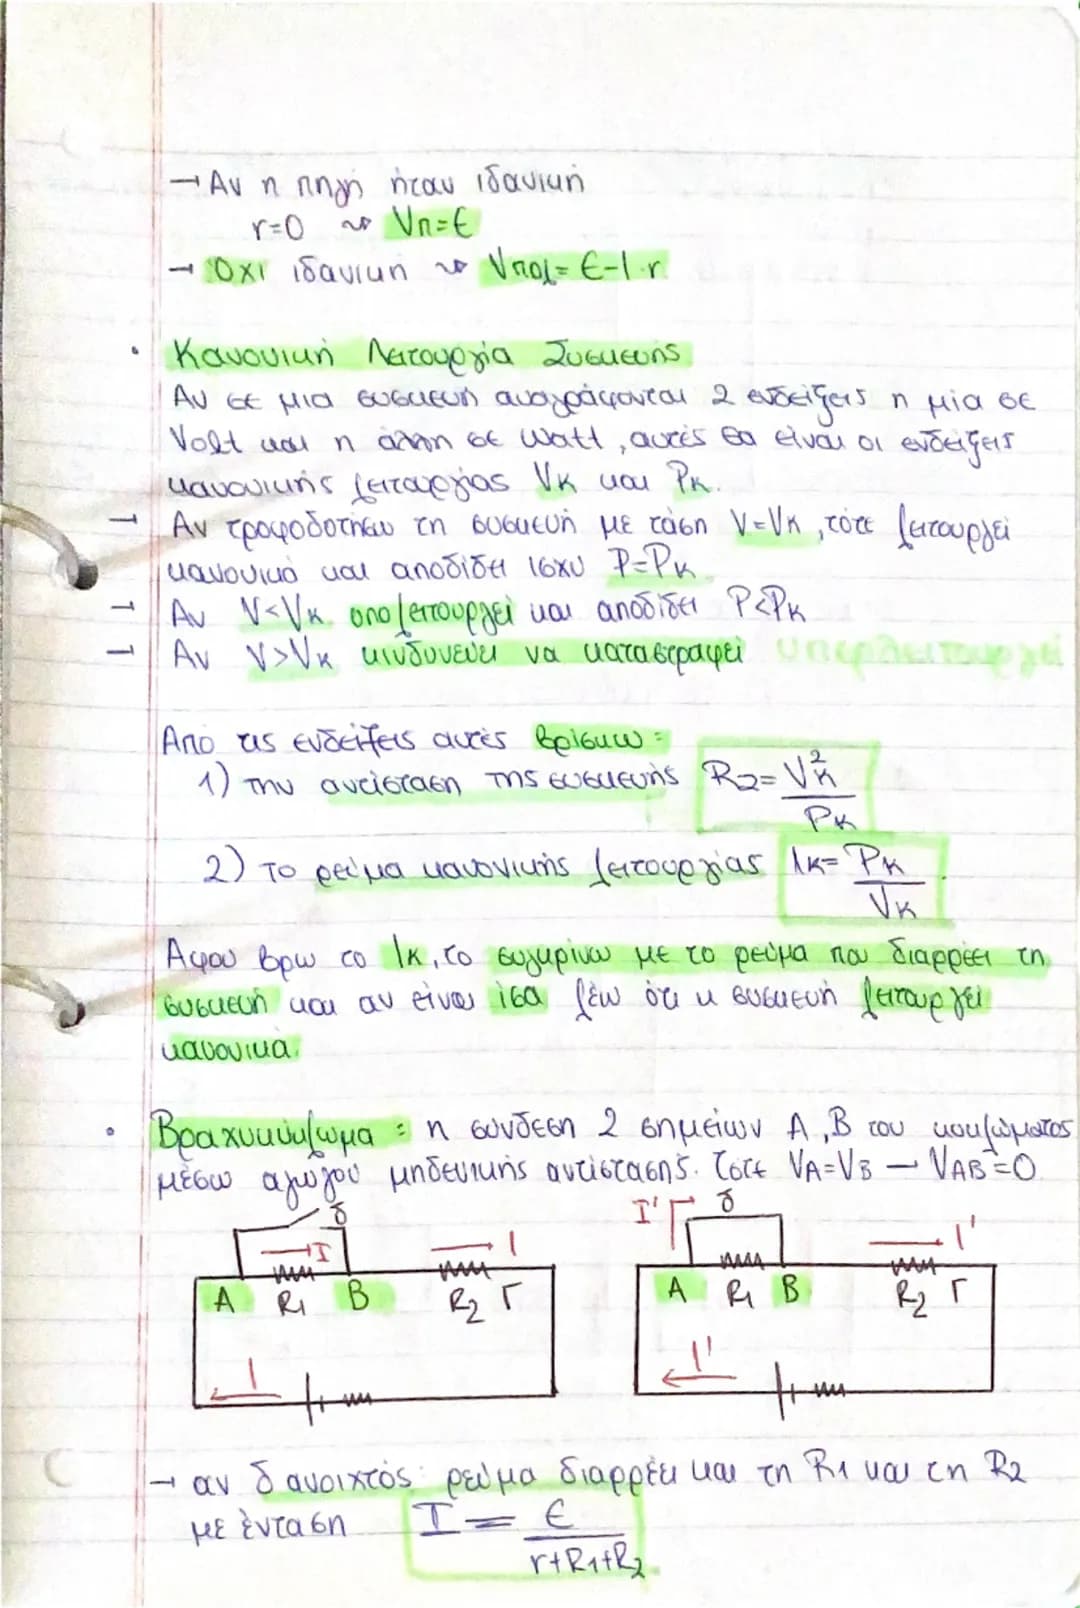 → Αν η πηγή ήταν ιδανική
r=0 ⇝ Vπ=Ε
→ Όχι ιδανική ⇝ Vπολ= Ε-Ι·r
• Κανονική Λειτουργία Συσκευής
Αν σε μια συσκευή αναγράφονται 2 ενδείξεις η μία σε
Volt και η άλλη σε Watt, αυτές θα είναι οι ενδείξεις
κανονικής λειτουργίας Vκ και Pκ.
→ Αν τροφοδοτήσω τη συσκευή με τάση V=Vκ, τότε λειτουργεί
κανονικά και αποδίδει ισχύ P=Pκ
→ Αν V<Vκ υπολειτουργεί και αποδίδει P<Pκ
→ Αν V>Vκ κινδυνεύει να καταστραφεί υπερλειτουργεί
Από τις ενδείξεις αυτές βρίσκω:
1) την αντίσταση της συσκευής R₂= V²κ
Pκ
2) το ρεύμα κανονικής λειτουργίας Iκ= Pκ
Vκ
Αφού βρω το Iκ, το συγκρίνω με το ρεύμα που διαρρέει τη
συσκευή και αν είναι ίσα λέω ότι η συσκευή λειτουργεί
κανονικά.
• Βραχυκύκλωμα: η σύνδεση 2 σημείων Α,Β του κυκλώματος
μέσω αγωγού μηδενικής αντίστασης. Τότε VA=VB → VAB=0
δ I' δ
I I I'
A R₁ B R₂ Γ A R₁ B R₂ Γ
I I'
→ αν δ ανοιχτός: ρεύμα διαρρέει και τη R₁ και τη R₂
με ένταση I = Ε
r+R₁+R₂.